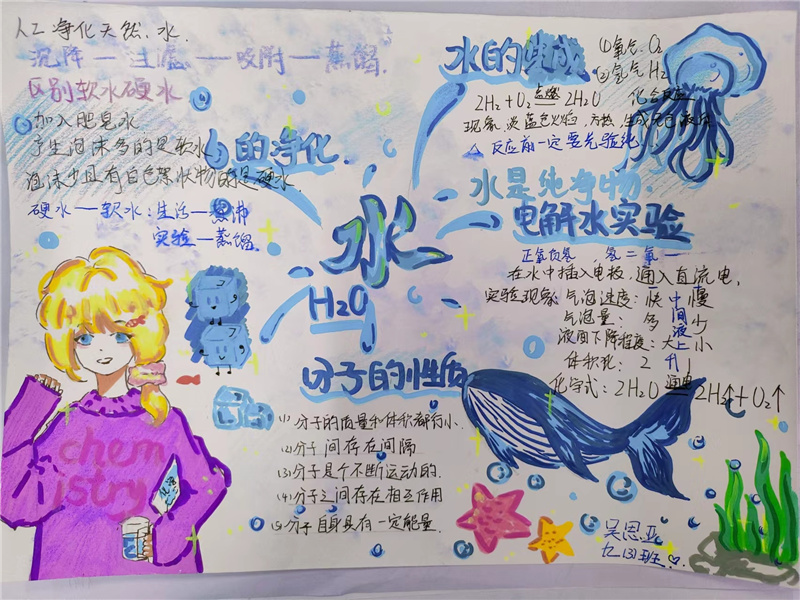 人工净化天然水.
沉降—过滤—吸附—蒸馏.
区别软水硬水
加入肥皂水
产生泡沫多的是软水
泡沫少且有白色絮状物的是硬水.
硬水—软水:生活—煮沸
实验—蒸馏.
的净化.
水的组成
(1)氧气:O₂
(2)氢气H₂
2H₂+O₂ 点燃 2H₂O 化合反应
现象:淡蓝色火焰,放热,生成无色液滴
△ 反应前一定要先验纯
水是纯净物.
电解水实验
正氧负氢 氢二氧一
在水中插入电极,通入直流电,
实验现象:气泡速度:快 中 慢
气泡量: 多 间 少
液面下降程度:大 液 小
体积比: 2 上升 1
化学式:2H₂O 通电 2H₂↑+O₂↑
水
H2O
分子的性质
(1)分子的质量和体积都很小.
(2)分子间存在间隔
(3)分子是个不断运动的.
(4)分子之间存在相互作用
(5)分子自身具有一定能量.
chem
istry
吴恩亚
九(3)班♡.